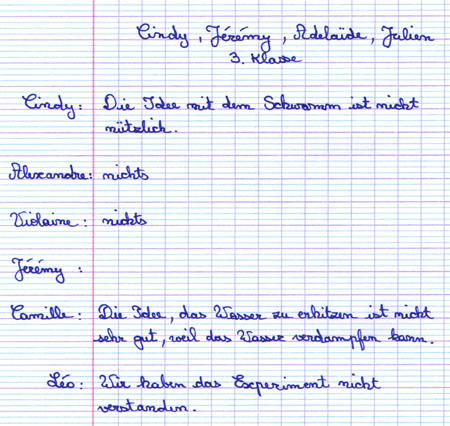 Cindy, Jérémy, Adelaïde, Julien
3. Klasse
Cindy: Die Idee mit dem Schwamm ist nicht
nützlich.
Alexandre: nichts
Violaine: nichts
Jérémy:
Camille: Die Idee, das Wasser zu erhitzen ist nicht
sehr gut, weil das Wasser verdampfen kann.
Léo: Wir haben das Experiment nicht
verstanden.